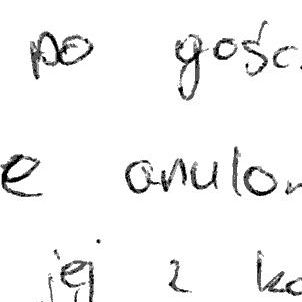 po gość
e anulo
jej z ko